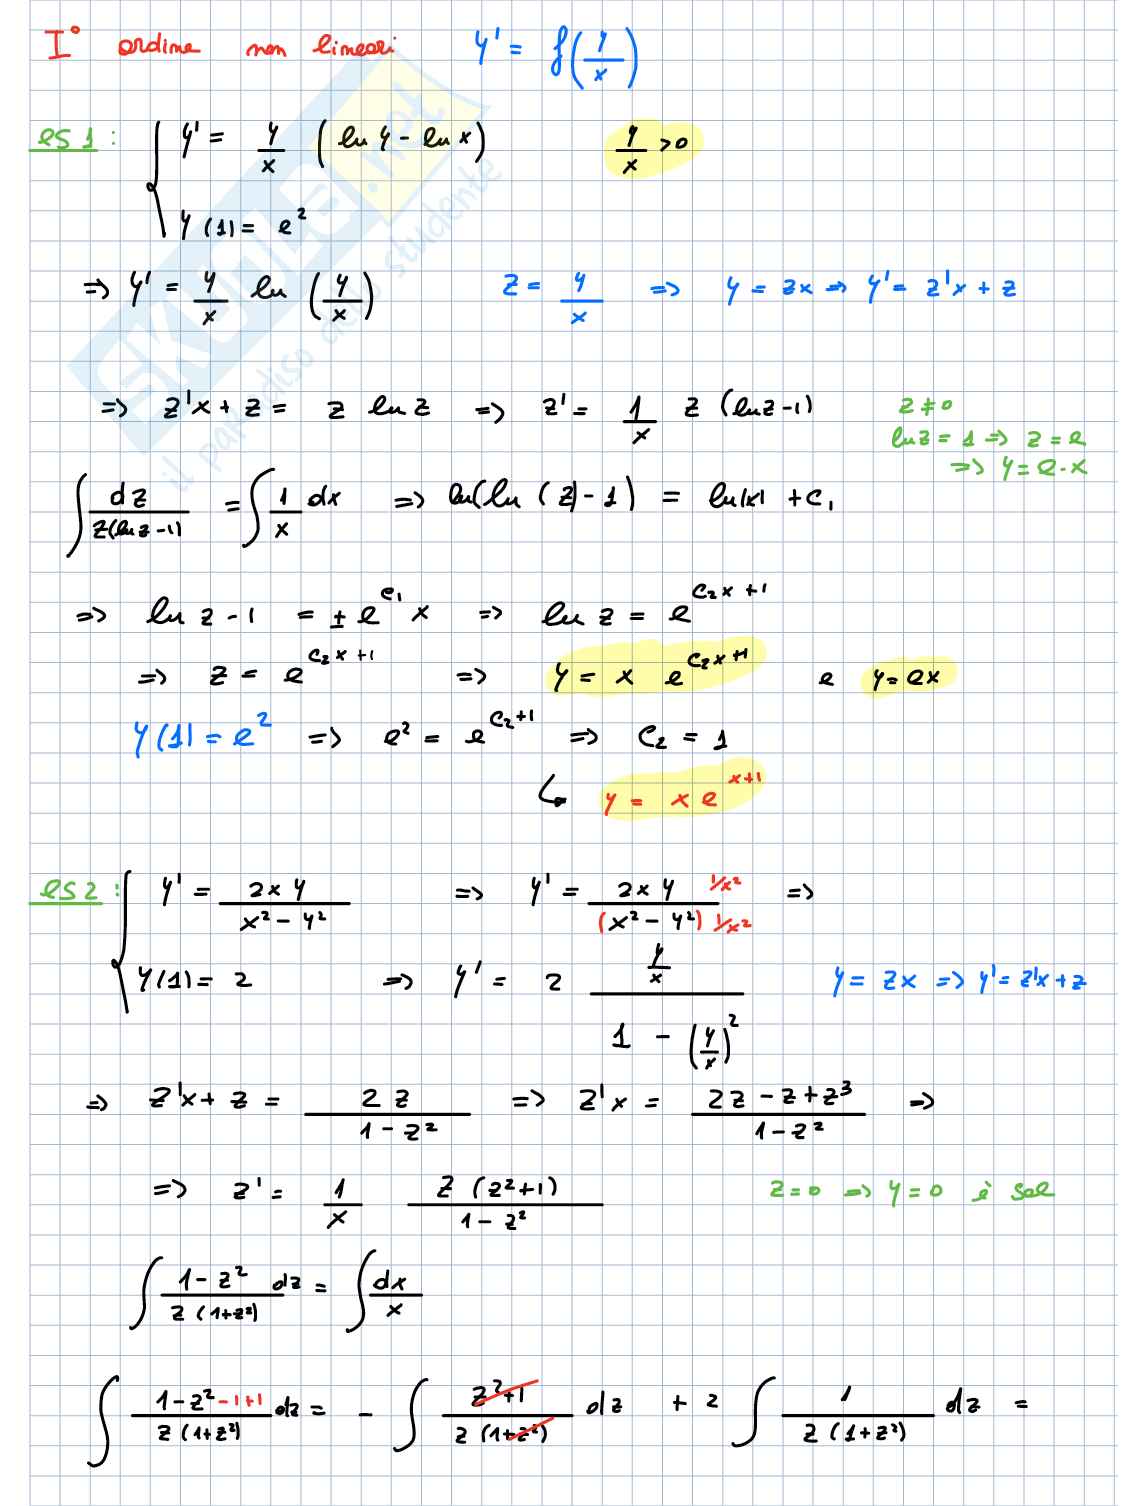 I° ordine non lineari y' = f(y/x)
es 1 : { y' = y/x (ln y - ln x) y/x >0
y(1) = e²
=> y' = y/x ln (y/x) z = y/x => y = zx => y' = z'x + z
=> z'x + z = z ln z => z' = 1/x z (ln z - 1) z ≠ 0
ln z = 1 => z = e
=> y = e·x
∫ dz/(z(ln z - 1)) = ∫ 1/x dx => ln(ln (z) - 1) = ln|x| + c₁
=> ln z - 1 = ± e^(c₁) x => ln z = e^(c₂x + 1)
=> z = e^(c₂x + 1) => y = x e^(c₂x + 1) e y = ex
y(1) = e² => e² = e^(c₂+1) => c₂ = 1
↳ y = x e^(x+1)
es 2 : { y' = 2xy/(x² - y²) => y' = 2xy 1/x² / (x² - y²) 1/x² =>
y(1) = 2 => y' = 2 (y/x)/(1 - (y/x)²) y = zx => y' = z'x + z
=> z'x + z = 2z/(1 - z²) => z'x = (2z - z + z³)/(1 - z²) =>
=> z' = 1/x z (z²+1)/(1 - z²) z = 0 => y = 0 è sol
∫ (1 - z²)/(z (1+z²)) dz = ∫ dx/x
∫ (1 - z² - 1 + 1)/(z (1+z²)) dz = - ∫ (z²+1)/(z (1+z²)) dz + 2 ∫ 1/(z (1+z²)) dz =
SKUOLA.net
il paradiso dello studente